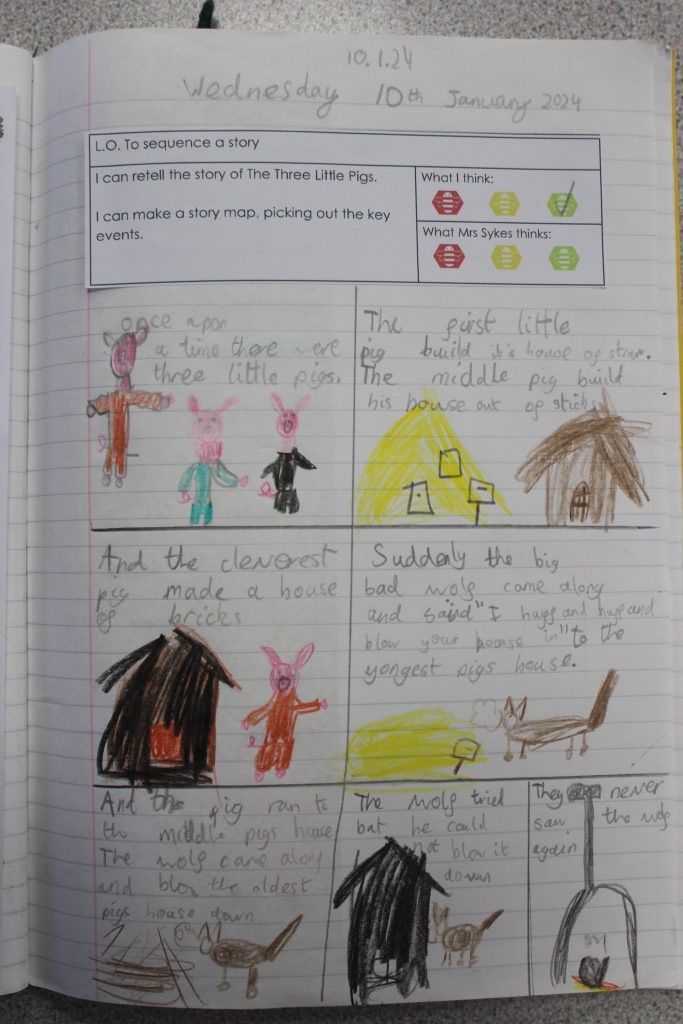 10.1.24
Wednesday 10th January 2024
L.O. To sequence a story
I can retell the story of The Three Little Pigs.
I can make a story map, picking out the key
events.
What I think:
What Mrs Sykes thinks:
once apon
a time there were
three little pigs.
The first little
pig build it's house of straw.
The middle pig build
his house out of sticks.
And the cleverest
pig made a house
of bricks
Suddenly the big
bad wolf came along
and said "I huff and huff and
blow your house in" to the
yongest pigs house.
And the pig ran to
the middle pigs house
The wolf came along
and blow the oldest
pigs house down
The wolf tried
but he could
not blow it
down
They never
saw the wolf
again